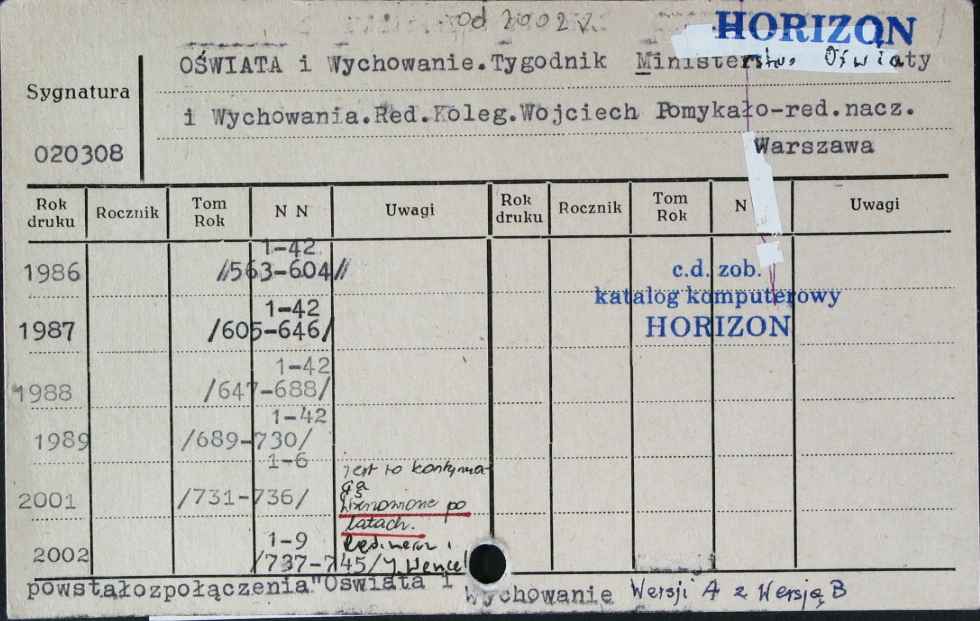 od 2002 r.
HORIZON
OŚWIATA i Wychowanie.Tygodnik Ministerstwo Oświaty
Sygnatura
i Wychowania.Red.Koleg.Wojciech Pomykało-red.nacz.
020308
Warszawa
Rok druku Rocznik Tom Rok N N Uwagi Rok druku Rocznik Tom Rok N Uwagi
1-42
1986 /563-604/
c.d. zob.
katalog komputerowy
HORIZON
1-42
1987 /605-646/
1-42
1988 /647-688/
1-42
1989 /689-730/
1-6
2001 /731-736/
jest to kontynua-
cja
wznowione po
latach.
1-9
2002 /737-745/
powstałozpołączenia"Oświata i Wychowanie Wersji A z Wersją B